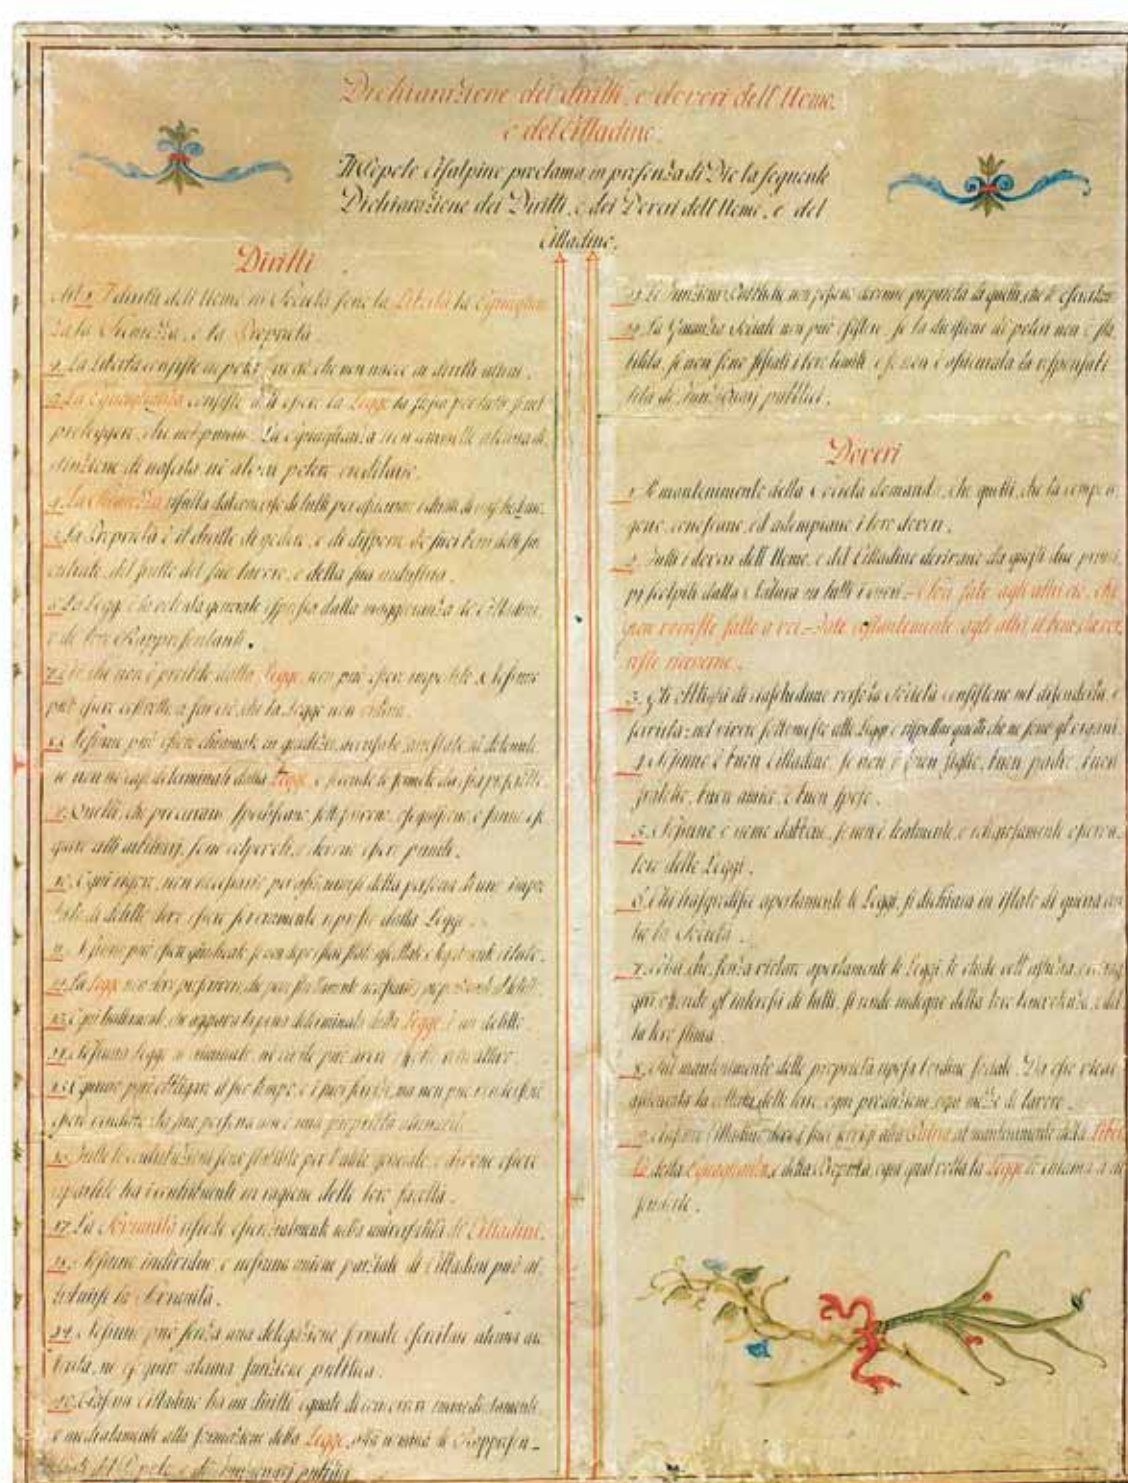 Dichiarazione dei diritti, e doveri dell'Uomo,
e del Cittadino.
Il Popolo Cisalpino proclama in presenza di Dio la seguente
Dichiarazione dei Diritti, e dei Doveri dell'Uomo, e del
Cittadino.
Diritti
Art. 1. I diritti dell'Uomo in Società sono la Libertà, la Eguaglian
za la Sicurezza, e la Proprietà
2. La Libertà consiste in poter far ciò che non nuoce ai diritti altrui.
3. La Eguaglianza consiste ad essere la Legge la stessa per tutti, o nel
proteggere, che nel punire. La Eguaglianza non ammette alcuna di
stinzione di nascita nè alcun potere ereditario.
4. La Sicurezza risulta dal concorso di tutti per assicurare i diritti di
5. La Proprietà è il diritto di godere, e di disporre de' suoi beni delle su
entrate, del frutto del suo lavoro, e della sua industria.
6. La Legge è la volontà generale espressa dalla maggioranza de' Cittadini
o de' loro Rappresentanti.
7. Ciò che non è proibito dalla Legge non può essere impedito. Nessuno
può essere costretto a far ciò, che la Legge non ordina.
8. Nessuno può essere chiamato in giudizio, accusato, arrestato nè detenuto
se non ne' casi determinati dalla Legge, e secondo le formole da essa prescritte.
9. Quelli, che procurano, spediscono, sottoscrivono, eseguiscono, o fanno ese
guire atti arbitrarj, sono colpevoli, e devono essere puniti.
10. Ogni rigore, non necessario per assicurarsi della persona di uno impu
tato di delitto deve essere severamente represso dalla Legge.
11. Nessuno può essere giudicato se non dopo essere stato ascoltato, o legalmente citato.
12. La Legge non deve prescrivere, che pene strettamente necessarie,
13. Ogni trattamento, che aggrava la pena determinata dalla Legge, è un delitto.
14. Nessuna Legge nè criminale, nè civile può avere effetto retroattivo.
15. Ognuno può obbligare il suo tempo, e i suoi servizj, ma non può vendersi nè
essere venduto. La sua persona non è una proprietà alienabile.
16. Tutte le contribuzioni sono stabilite per l'utile generale, e devono essere
ripartite fra i contribuenti in ragione delle loro facoltà.
17. La Sovranità risiede essenzialmente nella universalità de' Cittadini.
18. Nessuno individuo, e nessuna unione parziale di Cittadini può at
tribuirsi la Sovranità.
19. Nessuno può senza una delegazione formale esercitare alcuna au
torità, nè eseguire alcuna funzione pubblica.
20. Ciascun Cittadino ha un diritto eguale di concorrere immediatamente,
o mediatamente alla formazione della Legge, alla nomina de' Rappresen-
tanti del Popolo, e de' funzionarj pubblici.
21. Le Funzioni Pubbliche non possono divenire proprietà di quelli, che le esercitano
22. La Garanzia Sociale non può esistere, se la divisione de' poteri non è sta
bilita, se non sono fissati i loro limiti, e se non è assicurata la responsabi
lità de' funzionarj pubblici.
Doveri
1. Il mantenimento della Società domanda, che quelli, che la compon
gono, conoscano, ed adempiano i loro doveri.
2. Tutti i doveri dell'Uomo, e del Cittadino derivano da questi due princi
pj scolpiti dalla Natura in tutti i cuori. – Non fate agli altri ciò, che
non vorreste fatto a voi. – Fate costantemente agli altri il bene che vor
reste riceverne.
3. Gli Obblighi di ciascheduno verso la Società consistono nel difenderla, e
servirla: nel vivere sottomesso alle Leggi e rispettar quelli che ne sono gl'organi.
4. Nessuno è buon Cittadino, se non è buon figlio, buon padre, buon
fratello, buon amico, e buon sposo.
5. Nessuno è uomo dabbene, se non è lealmente, e religiosamente osserva
tore delle Leggi.
6. Chi trasgredisce apertamente le Leggi, si dichiara in istato di guerra con
tro la Società.
7. Colui che, senza violare apertamente le Leggi, le elude coll'astuzia,
offende gl'interessi di tutti, si rende indegno della loro benevolenza, e del
la loro stima.
8. Sul mantenimento delle proprietà riposa l'ordine sociale. Da esso viene
assicurata la coltura delle terre, ogni produzione, ogni mezzo di lavoro.
9. Ciascuno Cittadino deve i suoi servigj alla Patria, al mantenimento della Liber
tà, della Eguaglianza, e della Proprietà, ogni qual volta la Legge lo chiama a di
fenderle.